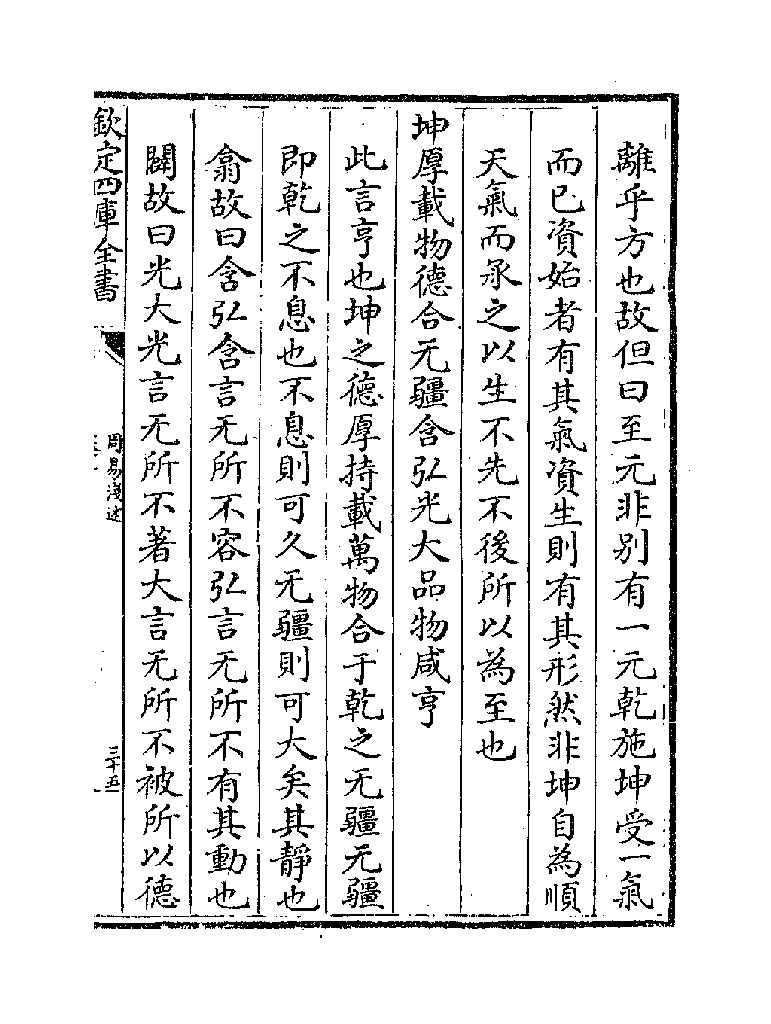 離乎方也故但曰至元非别有一元乾施坤受一氣
而已資始者有其氣資生則有其形然非坤自為順
天氣而承之以生不先不後所以為至也
坤厚載物德合无疆含弘光大品物咸亨
此言亨也坤之德厚持載萬物合于乾之无疆无疆
即乾之不息也不息則可久无疆則可大矣其靜也
翕故曰含弘含言无所不容弘言无所不有其動也
闢故曰光大光言无所不著大言无所不被所以德
欽定四庫全書
周易淺述
三十五